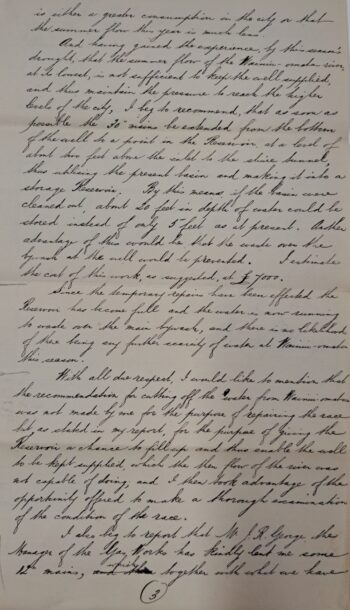 is either a greater consumption in the city or that
the summer flow this year is much less.
And having gained the experience, by this season's
drought, that the summer flow of the Wainui-omata river,
at its lowest, is not sufficient to keep the well supplied,
and thus maintain the pressure to reach the higher
levels of the city, I beg to recommend, that as soon as
possible the 30" main be extended from the bottom
of the well to a point in the Reservoir, at a level of
about two feet above the inlet to the sluice tunnel,
thus utilising the present basin and making it into a
storage Reservoir. By this means, if the basin were
cleaned out, about 20 feet in depth of water could be
stored, instead of only 5 feet as at present. Another
advantage of this would be that the waste over the
Bywash at the well would be prevented. I estimate
the cost of this work, as suggested, at £ 7000.
Since the temporary repairs have been effected the
Reservoir has become full and the water is now running
to waste over the main Bywash, and there is no likelihood
of there being any further scarcity of water at Wainui-omata
this season.
With all due respect, I would like to mention that
the recommendation for cutting off the water from Wainui-omata
was not made by me for the purpose of repairing the race
but, as stated in my report, for the purpose of giving the
Reservoir a chance to fill up and thus enable the well
to be kept supplied, which the then flow of the river was
not capable of doing, and I then took advantage of the
opportunity offered to make a thorough examination
of the condition of the race.
I also beg to report that Mr J. R. George, the
Manager of the Gas Works has kindly lent me some
12" mains, together with what we have
3